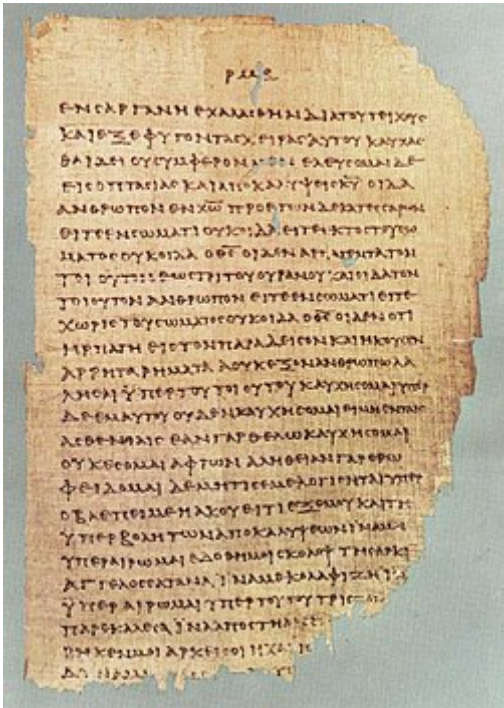 ΡΜΕ
ΕΝϹΑΡΓΑΝΗΕΧΑΛΑϹΘΗΝΔΙΑΤΟΥΤΕΙΧΟΥϹ
ΚΑΙΕΞΕΦΥΓΟΝΤΑϹΧΕΙΡΑϹΑΥΤΟΥΚΑΥΧΑϹ
ΘΑΙΔΕΙΟΥϹΥΜΦΕΡΟΝΕΛΕΥϹΟΜΑΙΔΕ
ΕΙϹΟΠΤΑϹΙΑϹΚΑΙΑΠΟΚΑΛΥΨΕΙϹΚ̅Υ̅ΟΙΔΑ
ΑΝΘΡΩΠΟΝΕΝΧ̅Ω̅ΠΡΟΕΤΩΝΔΕΚΑΤΕϹϹΑΡΩΝ
ΕΙΤΕΕΝϹΩΜΑΤΙΟΥΚΟΙΔΑΕΙΤΕΕΚΤΟϹΤΟΥϹΩ
ΜΑΤΟϹΟΥΚΟΙΔΑΟΘ̅Ϲ̅ΟΙΔΕΝΑΡΠΑΓΕΝΤΑΤΟΝ
ΤΟΙΟΥΤΟΝΕΩϹΤΡΙΤΟΥΟΥΡΑΝΟΥΚΑΙΟΙΔΑΤΟΝ
ΤΟΙΟΥΤΟΝΑΝΘΡΩΠΟΝΕΙΤΕΕΝϹΩΜΑΤΙΕΙΤΕ
ΧΩΡΙϹΤΟΥϹΩΜΑΤΟϹΟΥΚΟΙΔΑΟΘ̅Ϲ̅ΟΙΔΕΝΟΤΙ
ΗΡΠΑΓΗΕΙϹΤΟΝΠΑΡΑΔΕΙϹΟΝΚΑΙΗΚΟΥϹΕΝ
ΑΡΡΗΤΑΡΗΜΑΤΑΑΟΥΚΕΞΟΝΑΝΘΡΩΠΩΛΑ
ΛΗϹΑΙΫΠΕΡΤΟΥΤΟΙΟΥΤΟΥΚΑΥΧΗϹΟΜΑΙΥΠΕΡ
ΔΕΕΜΑΥΤΟΥΟΥΔΕΝΚΑΥΧΗϹΟΜΑΙΕΙΜΗΕΝΤΑΙϹ
ΑϹΘΕΝΙΑΙϹΕΑΝΓΑΡΘΕΛΩΚΑΥΧΗϹΟΜΑΙ
ΟΥΚΕϹΟΜΑΙΑΦΡΩΝΑΛΗΘΕΙΑΝΓΑΡΕΡΩ
ΦΕΙΔΟΜΑΙΔΕΜΗΤΙϹΕΜΕΛΟΓΙϹΗΤΑΙΥΠΕΡ
ΟΒΛΕΠΕΙΜΕΗΑΚΟΥΕΙΤΙΕΞΕΜΟΥΚΑΙΤΗ
ΫΠΕΡΒΟΛΗΤΩΝΑΠΟΚΑΛΥΨΕΩΝΙΝΑΜΗ
ΥΠΕΡΑΙΡΩΜΑΙΕΔΟΘΗΜΟΙϹΚΟΛΟΨΤΗϹΑΡΚΙ
ΑΓΓΕΛΟϹϹΑΤΑΝΑΪΝΑΜΕΚΟΛΑΦΙΖΗΙΝΑ
ΫΠΕΡΑΙΡΩΜΑΙΥΠΕΡΤΟΥΤΟΥΤΡΙϹ
ΠΑΡΕΚΑΛΕϹΑΪΝΑΑΠΟϹΤΗ
ΡΗΚΕΝΜΟΙΑΡΚΕΙϹΟΙΗΧΑ
ΔΥΝΑΜ